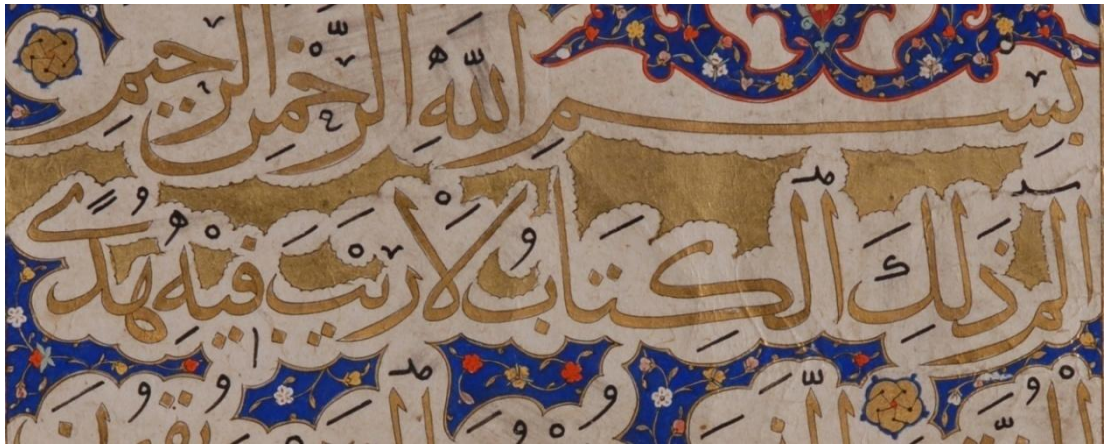 بِسْمِ اللَّهِ الرَّحْمَنِ الرَّحِيمِ
الم ذَلِكَ الْكِتَابُ لَا رَيْبَ فِيهِ هُدًى